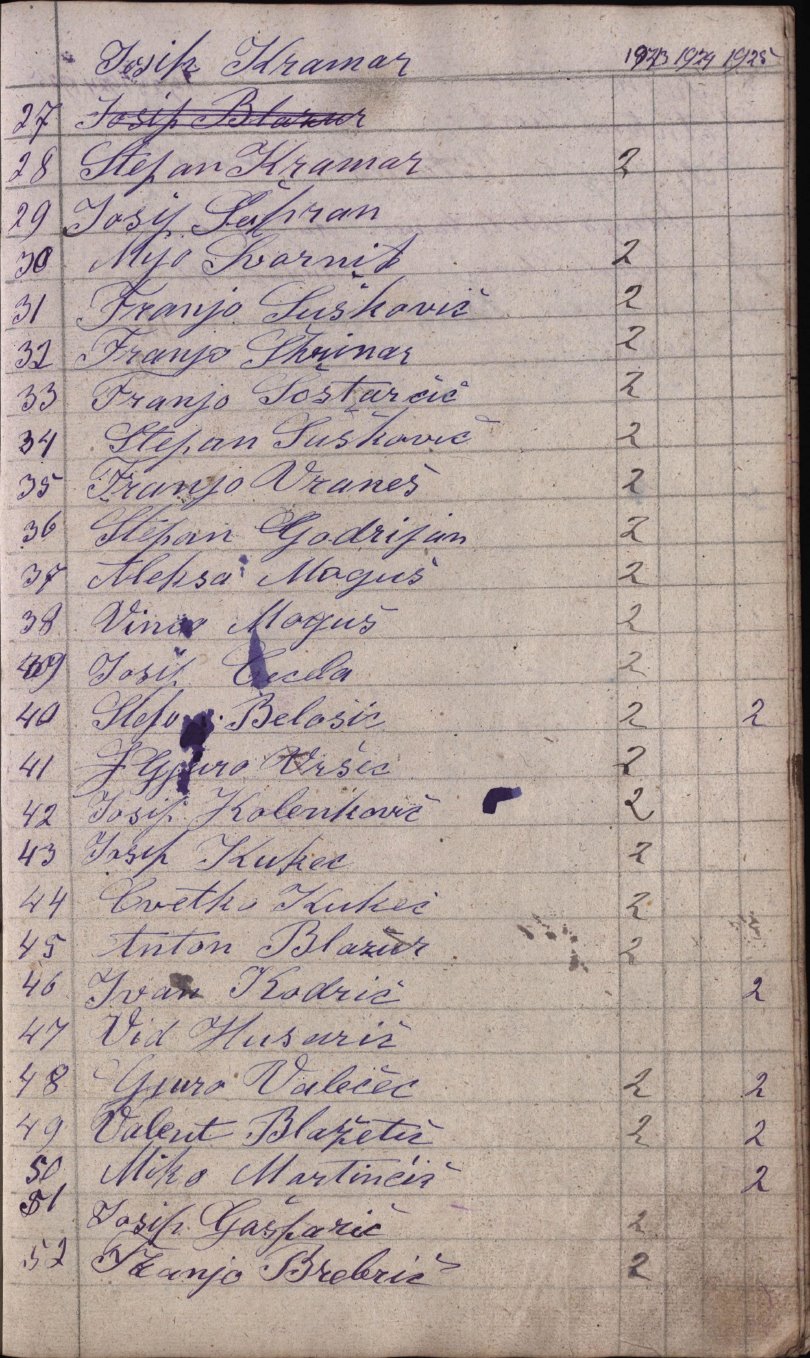 Josip Kramar 1923 1924 1925
27 Josip Blazur
28 Stepan Kramar 2
29 Josip Šafran
30 Mijo 2
31 Franjo Sušković 2
32 Franjo Škrinar 2
33 Franjo Šoštarčić 2
34 Stepan Sušković 2
35 Franjo Vraneš 2
36 Stepan Godrijan 2
37 Aleksa Moguš 2
38 Moguš 2
39 Josip 2
40 Belošic 2 2
41 Gjuro Vršec 2
42 Josip Kolenković 2
43 Josip Kukec 2
44 Cvetko Kukec 2
45 Anton Blazur 2
46 Ivan Kodrič 2
47 Vid Husarić
48 Gjuro Valečec 2 2
49 Valent Blažetić 2 2
50 Miko Martinčić 2
51 Josip Gašparić 2
52 Franjo Brebrić 2